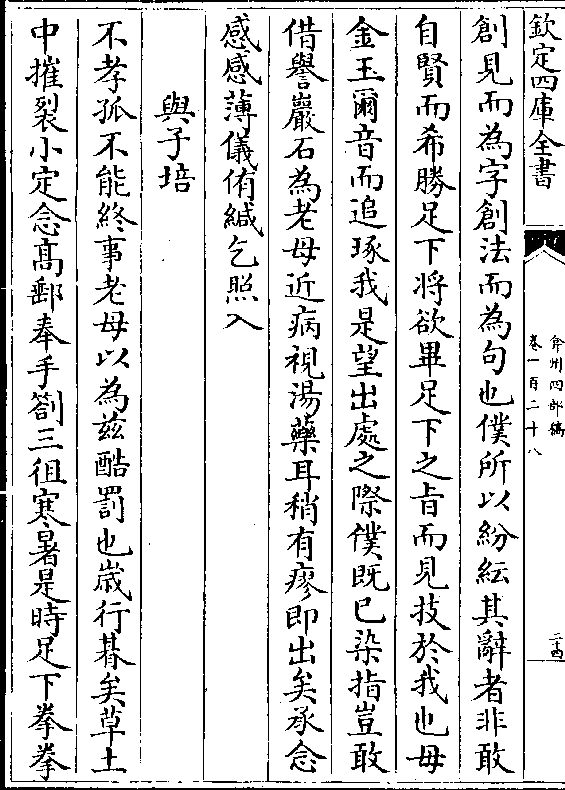 欽定四庫全書
弇州四部稿
卷一百二十八
二十四
創見而為字創法而為句也僕所以紛紜其辭者非敢
自賢而希勝足下將欲畢足下之旨而見技於我也毋
金玉爾音而追琢我是望出處之際僕既已染指豈敢
借譽巖石為老母近病視湯藥耳稍有瘳即出矣承念
感感薄儀侑緘乞照入
與子培
不孝孤不能終事老母以為兹酷罰也歲行朞矣草土
中摧裂小定念髙郵奉手劄三徂寒暑是時足下拳拳